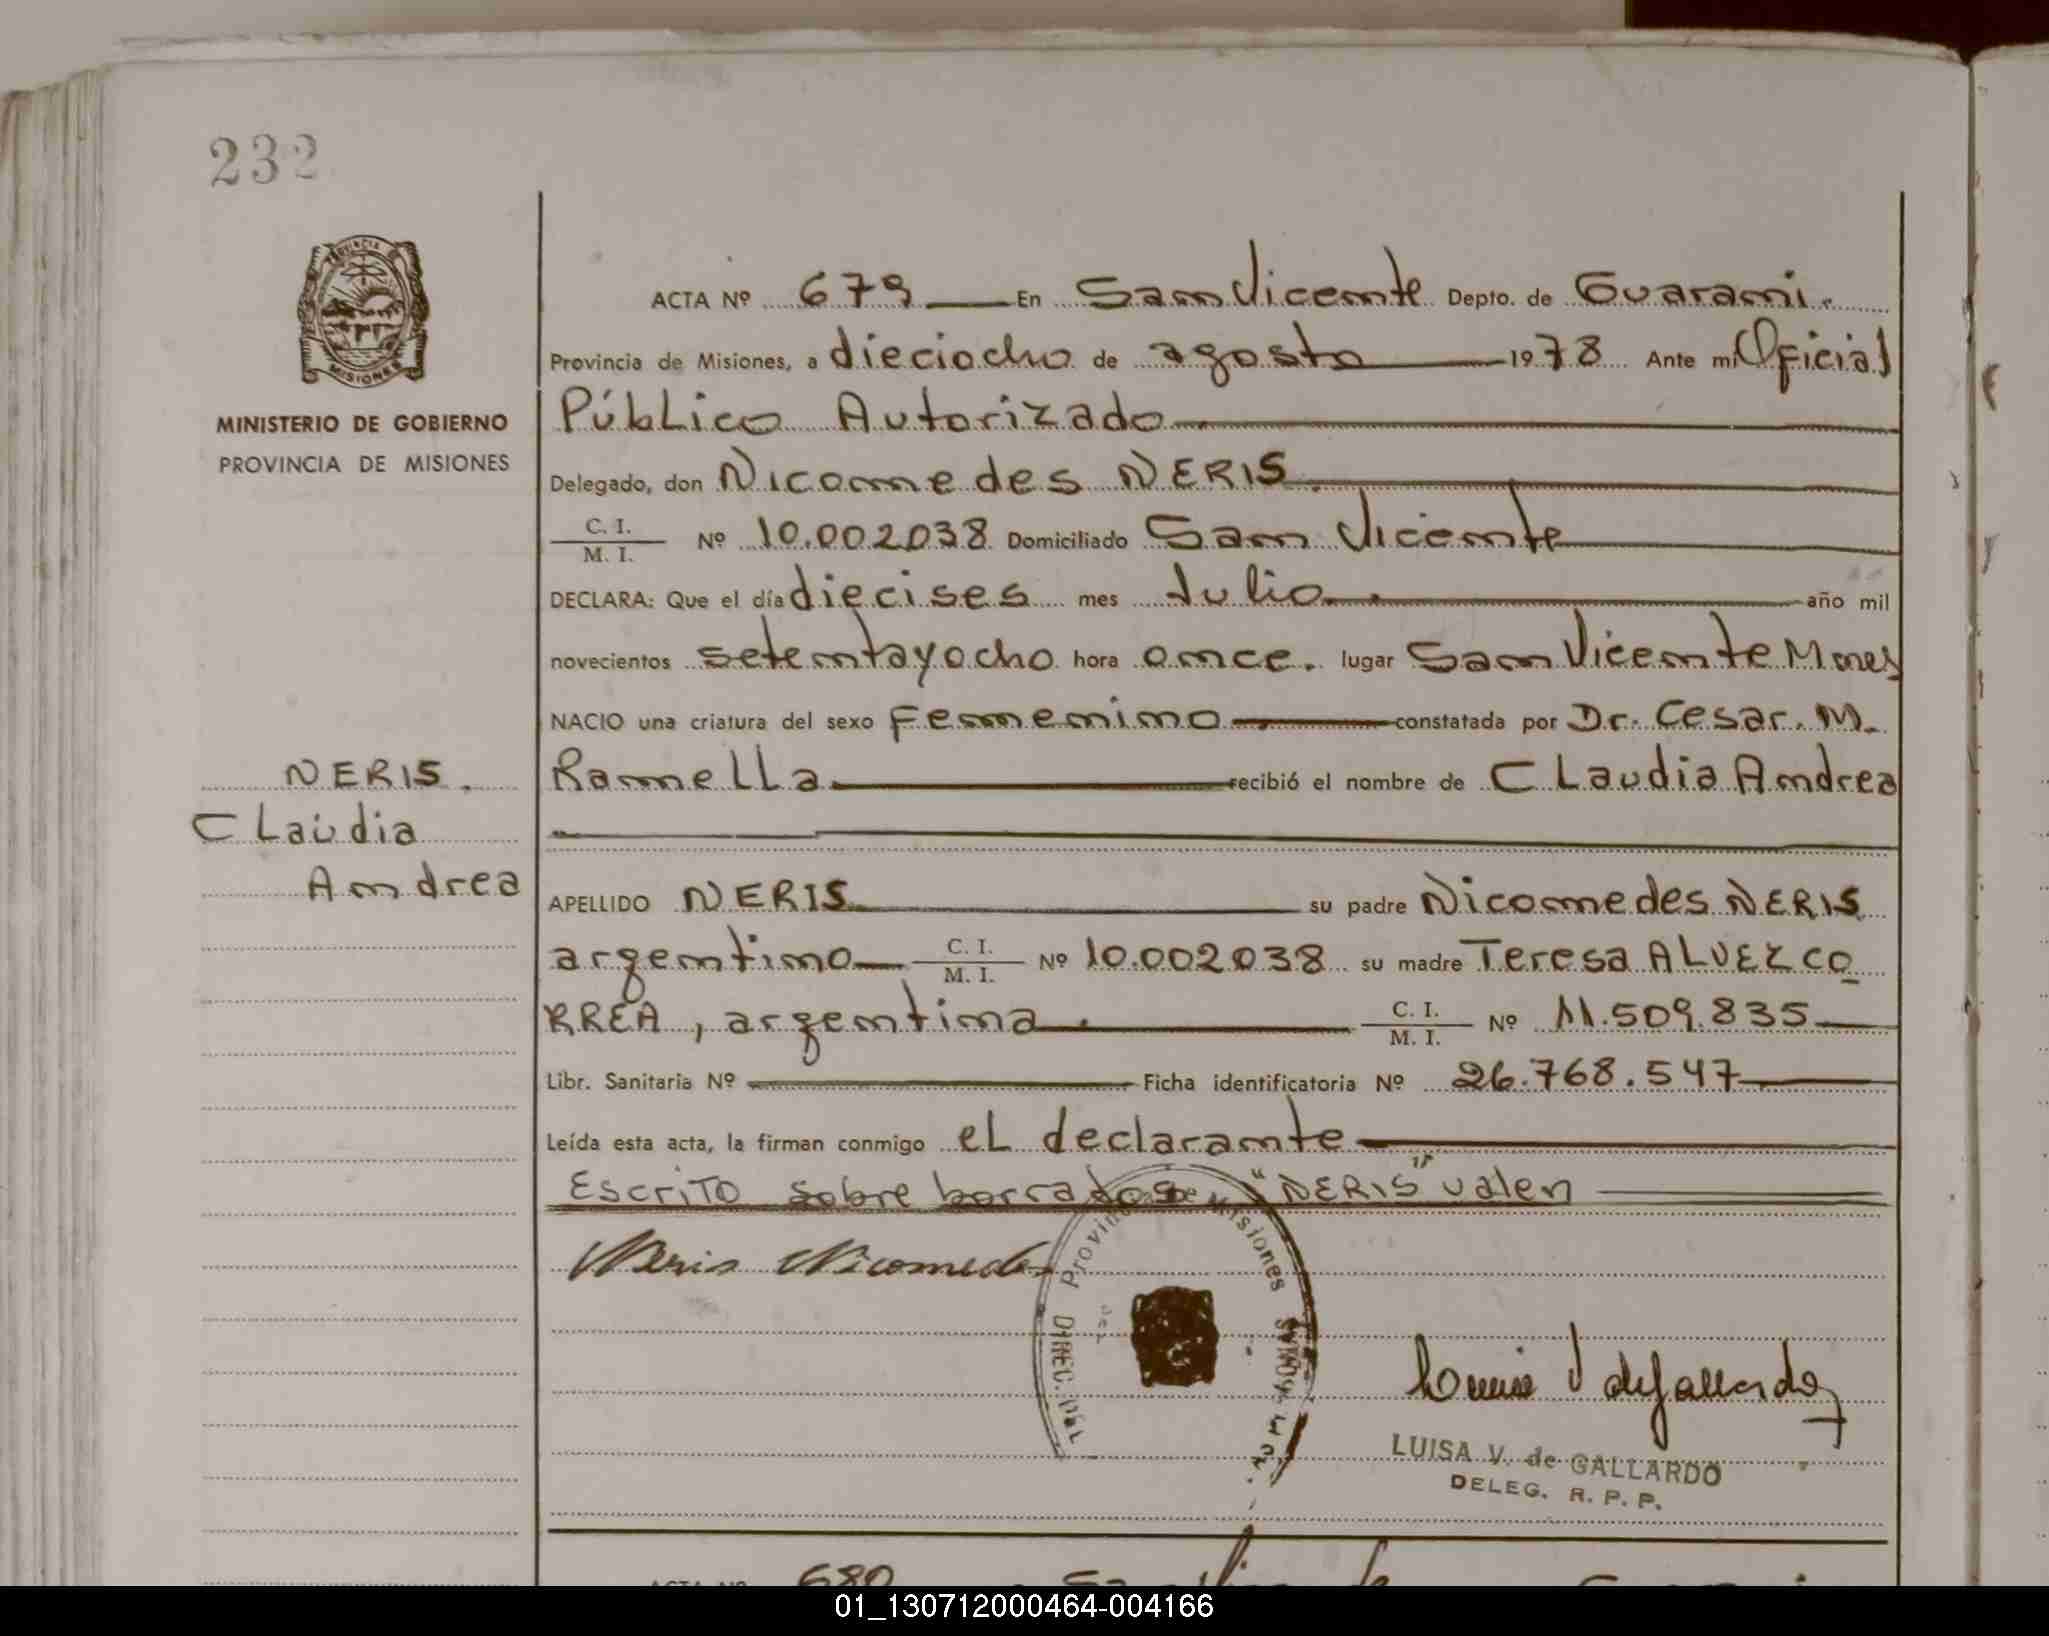 232
PROVINCIA
MISIONES
MINISTERIO DE GOBIERNO
PROVINCIA DE MISIONES
ACTA Nº 679 En San Vicente Depto. de Guarani.
Provincia de Misiones, a dieciocho de agosto 1978 Ante mi Oficial
Público Autorizado
Delegado, don Nicomedes NERIS.
C. I.
M. I. Nº 10.002038 Domiciliado San Vicente
DECLARA: Que el día diecises mes Julio año mil
novecientos setentayocho hora once. lugar San Vicente Mnes
NACIO una criatura del sexo Femenino constatada por Dr. Cesar. M.
NERIS.
Claudia
Andrea
Ramella recibió el nombre de Claudia Andrea
APELLIDO NERIS su padre Nicomedes NERIS
argentino C. I.
M. I. Nº 10.002038 su madre Teresa ALVEZ CO
RREA, argentina. C. I.
M. I. Nº 11.509.835
Libr. Sanitaria Nº Ficha identificatoria Nº 26.768.547
Leída esta acta, la firman conmigo el declarante
Escrito sobre borrados "NERIS" valen
Neris Nicomedes
Provincia de Misiones
DIREC. DEL
Luisa V de Gallardo
LUISA V. de GALLARDO
DELEG. R. P. P.
ACTA Nº 680
01_130712000464-004166